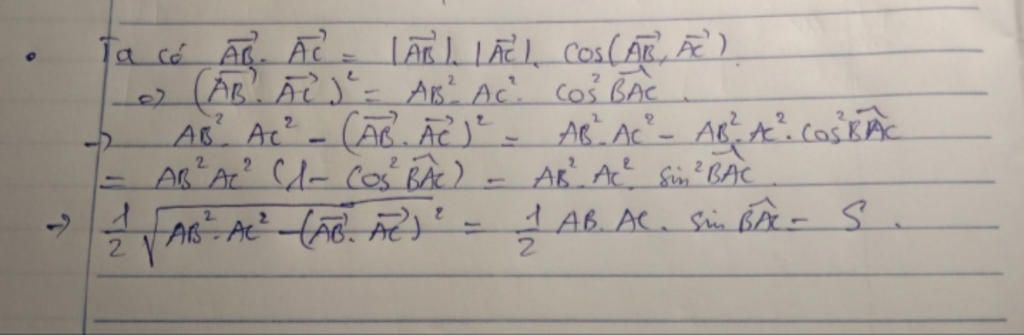 • Ta có $\overrightarrow{AB}. \overrightarrow{AC} = |\overrightarrow{AB}|. |\overrightarrow{AC}|. cos(\overrightarrow{AB}, \overrightarrow{AC})$
=> $(\overrightarrow{AB}. \overrightarrow{AC})^2 = AB^2. AC^2. cos^2 \widehat{BAC}$.
-> $AB^2. AC^2 - (\overrightarrow{AB}. \overrightarrow{AC})^2 = AB^2. AC^2 - AB^2. AC^2. cos^2 \widehat{BAC}$
$= AB^2 AC^2 (1 - cos^2 \widehat{BAC}) = AB^2. AC^2. sin^2 \widehat{BAC}$
-> $\frac{1}{2} \sqrt{AB^2. AC^2 - (\overrightarrow{AB}. \overrightarrow{AC})^2} = \frac{1}{2} AB. AC. sin \widehat{BAC} = S$.